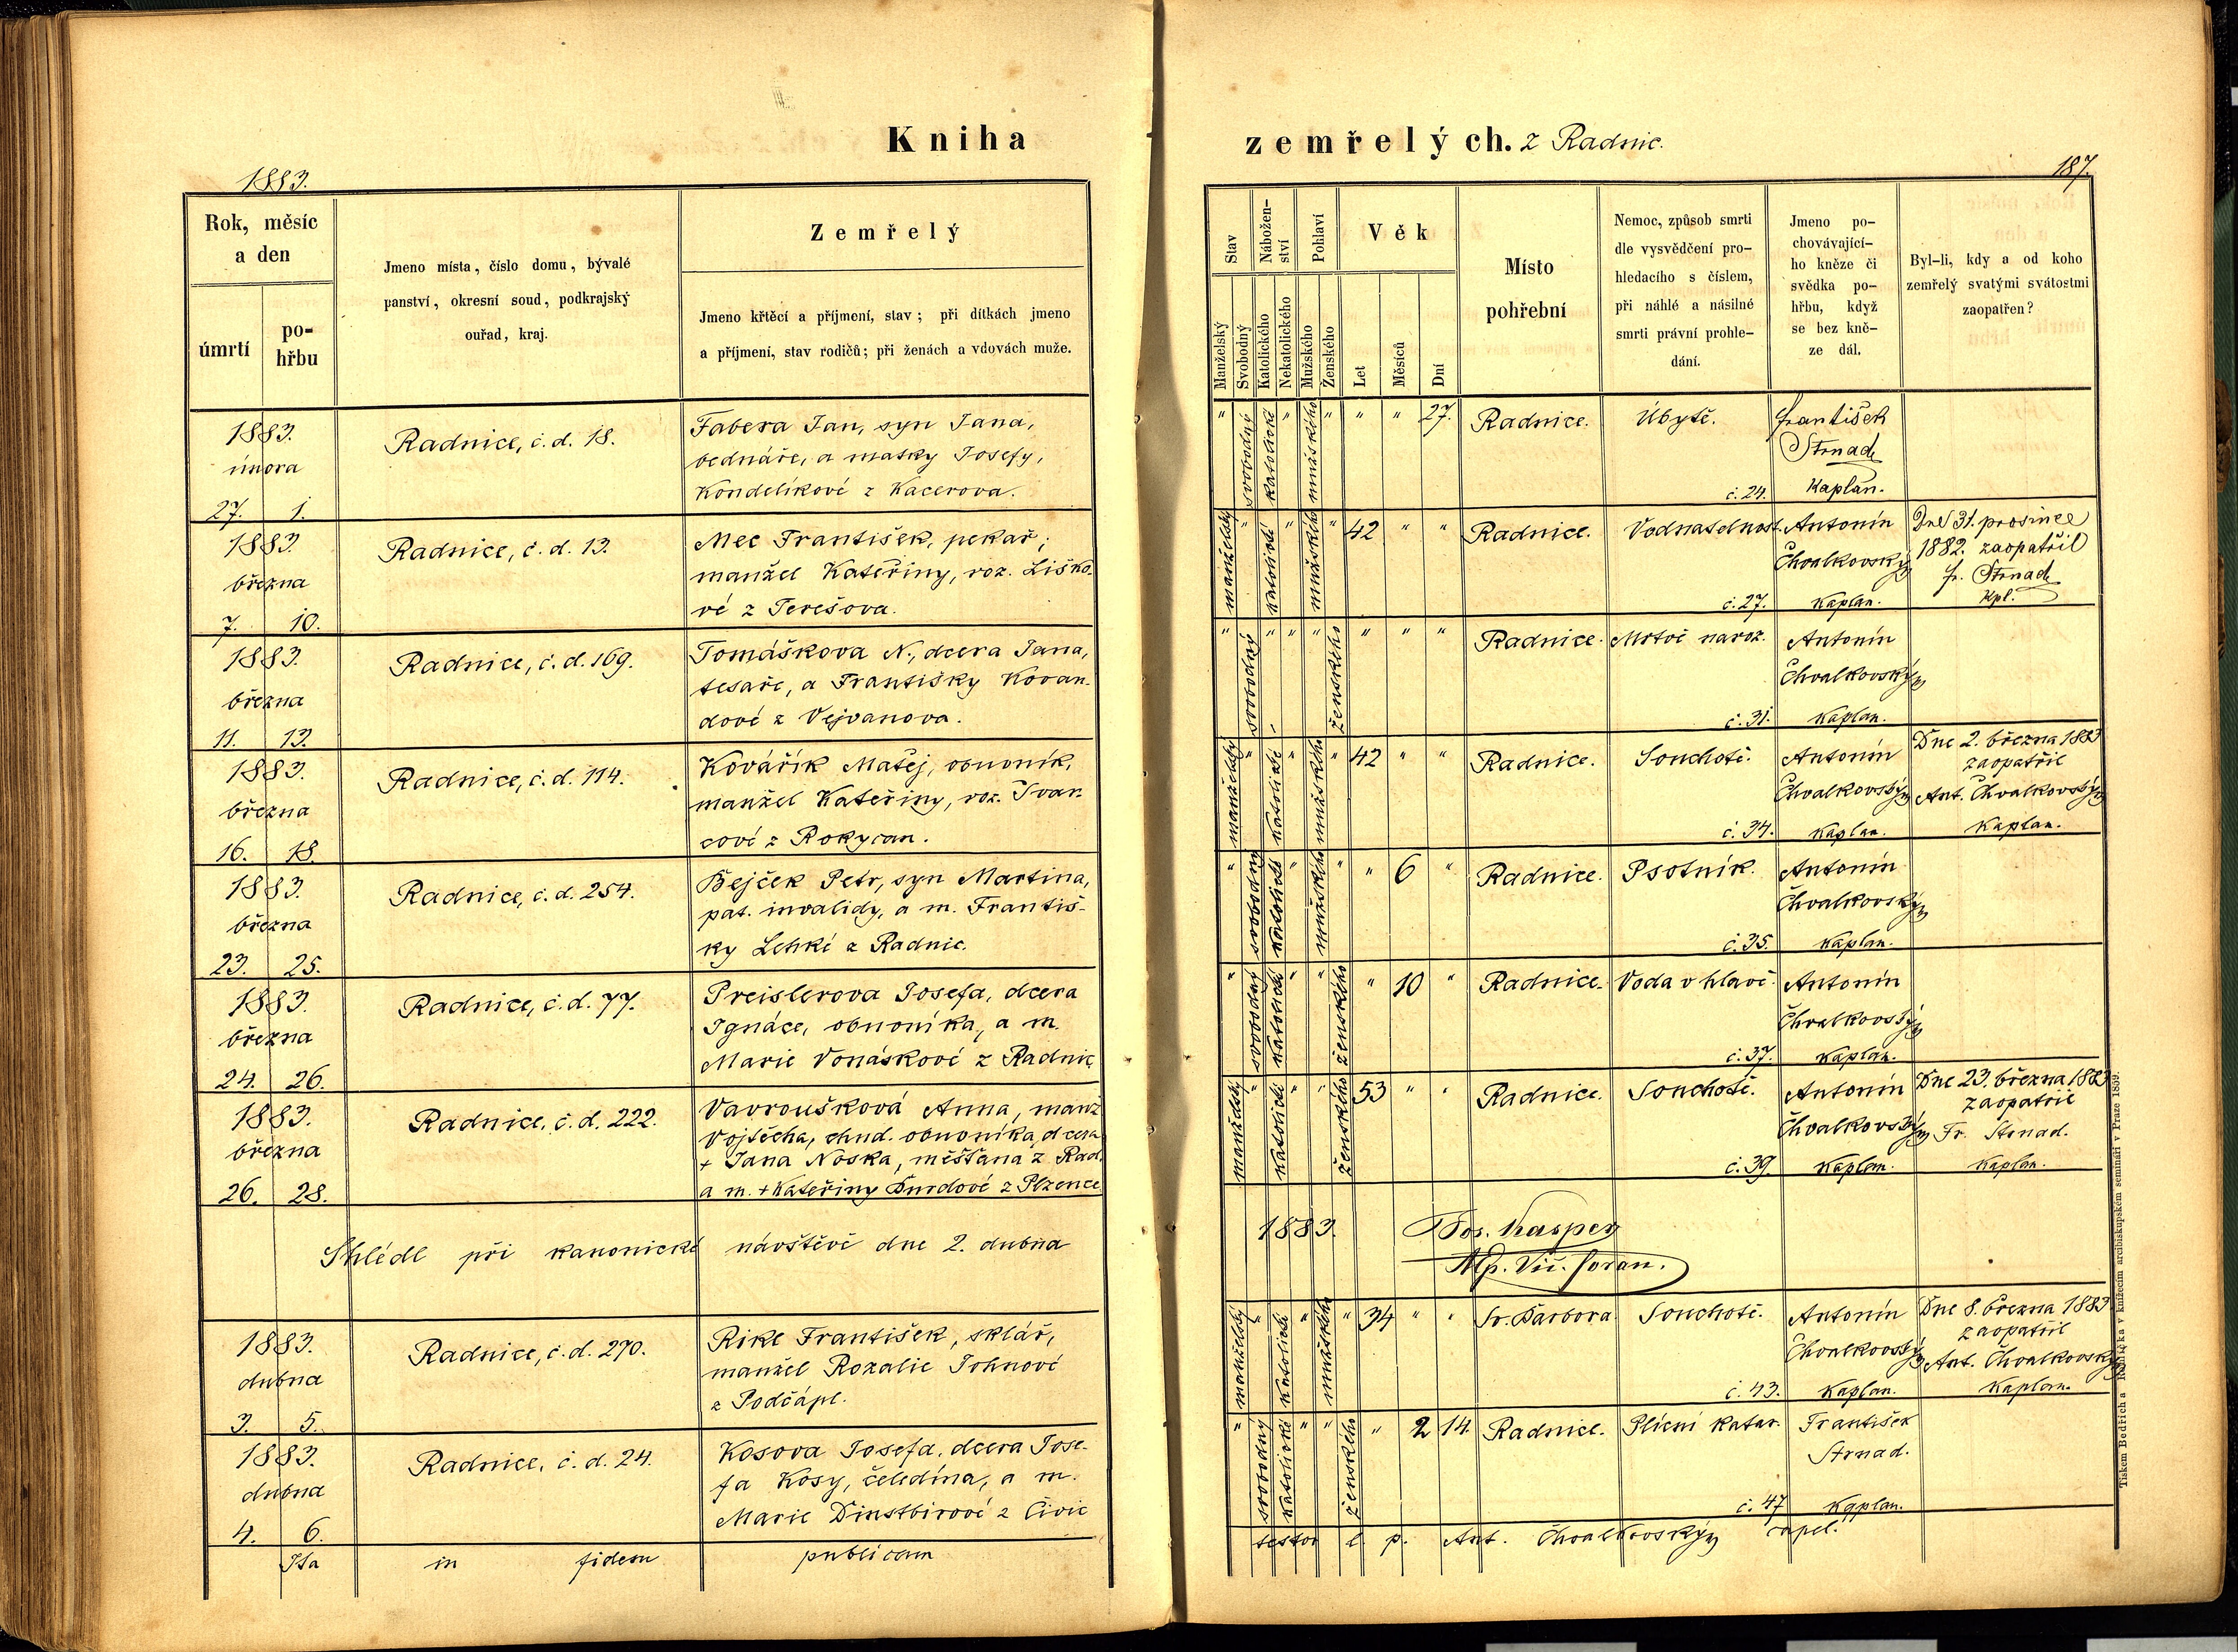 Kniha zemřelých. z Radnic.
1883.
187.
Rok, měsíc
a den
úmrtí
po-
hřbu
Jmeno místa, číslo domu, bývalé
panství, okresní soud, podkrajský
ouřad, kraj.
Zemřelý
Jmeno křtěcí a příjmení, stav; při dítkách jmeno
a příjmení, stav rodičů; při ženách a vdovách muže.
Stav
Manželský
Svobodný
Nábožen-
ství
Katolického
Nekatolického
Pohlaví
Mužského
Ženského
Věk
Let
Měsíců
Dní
Místo
pohřební
Nemoc, způsob smrti
dle vysvědčení pro-
hledacího s číslem,
při náhlé a násilné
smrti právní prohle-
dání.
Jmeno po-
chovávající-
ho kněze či
svědka po-
hřbu, když
se bez kně-
ze dál.
Byl-li, kdy a od koho
zemřelý svatými svátostmi
zaopatřen?
1883.
února
27. 1.
Radnice, č. d. 18.
Fabera Jan, syn Jana,
bednáře, a matky Josefy,
Kondelíkové z Kacerova.
" svobodný katolické " mužského " " " 27.
Radnice.
Úbytě.
č. 24.
František
Strnad
Kaplan.
1883.
března
7. 10.
Radnice, č. d. 13.
Mec František, pekař;
manžel Kateřiny, roz. Liško-
vé z Terešova.
manželský " katolické " mužského " 42 " "
Radnice.
Vodnatelnost.
č. 27.
Antonín
Chvalkovský
Kaplan.
Dne 31. prosince
1882. zaopatřil
fr. Strnad
Kpl.
1883.
března
11. 13.
Radnice, č. d. 169.
Tomáškova N., dcera Jana,
tesaře, a Františky Kovan-
dové z Vejvanova.
" svobodný " " " ženského " " "
Radnice.
Mrtvě naroz.
č. 31.
Antonín
Chvalkovský
Kaplan.
1883.
března
16. 18.
Radnice, č. d. 114.
Kovářík Matěj, obuvník,
manžel Kateřiny, roz. Ivan
cové z Rokycan.
manželský " katolické " mužského " 42 " "
Radnice.
Souchotě.
č. 34.
Antonín
Chvalkovský
Kaplan.
Dne 2. března 1883
zaopatřil
Ant. Chvalkovský
Kaplan.
1883.
března
23. 25.
Radnice, č. d. 254.
Bejček Petr, syn Martina,
pat. invalidy, a m. Františ-
ky Lehké z Radnic.
" svobodný katolické " mužského " " 6 "
Radnice.
Psotník.
č. 35.
Antonín
Chvalkovský
Kaplan.
1883.
března
24. 26.
Radnice, č. d. 77.
Preislerova Josefa, dcera
Ignáce, obuvníka, a m.
Marie Vonáskové z Radnic.
" svobodný katolické " " ženského " 10 "
Radnice.
Voda v hlavě.
č. 37.
Antonín
Chvalkovský
Kaplan.
1883.
března
26. 28.
Radnice, č. d. 222.
Vavroušková Anna, manž
Vojtěcha, chud. obuvníka, dcera
+ Jana Noska, měšťana z Rad.
a m. + Kateřiny z Plzence
manželský " katolické " " ženského 53 " "
Radnice.
Souchotě.
č. 39.
Antonín
Chvalkovský
Kaplan.
Dne 23. března 1883
zaopatřil
Fr. Strnad.
Kaplan.
Shlédl při kanonické návštěvě dne 2. dubna 1883. Jos. Kasper
1883.
dubna
3. 5.
Radnice, č. d. 270.
Rike František, sklář,
manžel Rozalie Johnové
z Podčápl.
manželský " katolické " mužského " 34 " "
Sv. Barbora
Souchotě.
č. 43.
Antonín
Chvalkovský
Kaplan.
Dne 8. března 1883
zaopatřil
Ant. Chvalkovský
Kaplan.
1883.
dubna
4. 6.
Radnice, č. d. 24.
Kosova Josefa, dcera Jose-
fa Kosy, čeledína, a m.
Marie Dinstbirové z Čivic
" svobodný katolické " " ženského " 2 14.
Radnice.
Plícní katar.
č. 47
František
Strnad.
Kaplan.
Ita in fidem publicam testor l. p. Ant. Chvalkovský capel.
Tiskem Bedřicha Rohlíčka v knížecím arcibiskupském semináři v Praze 1859.